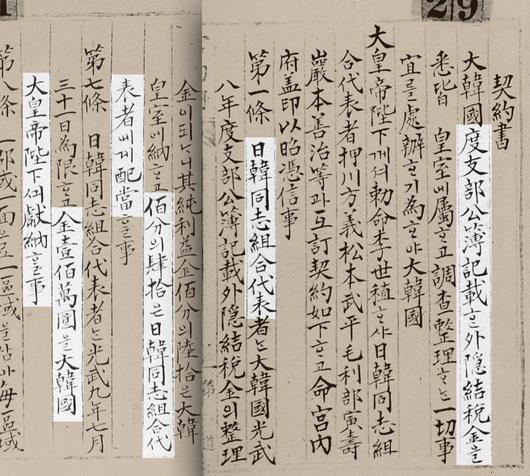 29
契約書
大韓國度支部公簿記載ᄒᆞᆫ外隱結稅金을
悉皆 皇室에屬ᄒᆞ고調査整理ᄒᆞᄂᆞᆫ一切事
宜를處辦ᄒᆞ기爲ᄒᆞ야大韓國
大皇帝陛下게셔勅命李世稙ᄒᆞ샤日韓同志組
合代表者押川方義松本武平毛利部寅壽
巖本善治等과互訂契約如下ᄒᆞ고命宮內
府盖印以昭憑信事
第一條 日韓同志組合代表者ᄂᆞᆫ大韓國光武
八年度支部公簿記載外隱結稅金의整理
金이되ᄂᆞ니其純利益金佰分의陸拾은大韓
皇室에納ᄒᆞ고佰分의肆拾은日韓同志組合代
表者에게配當ᄒᆞᆯ事
第七條 日韓同志組合代表者ᄂᆞᆫ光武九年七月
三十一日為限ᄒᆞ고金壹佰萬圓을大韓國
大皇帝陛下게獻納ᄒᆞᆯ事
第八條 一郡或一面 一區域을 每一區域